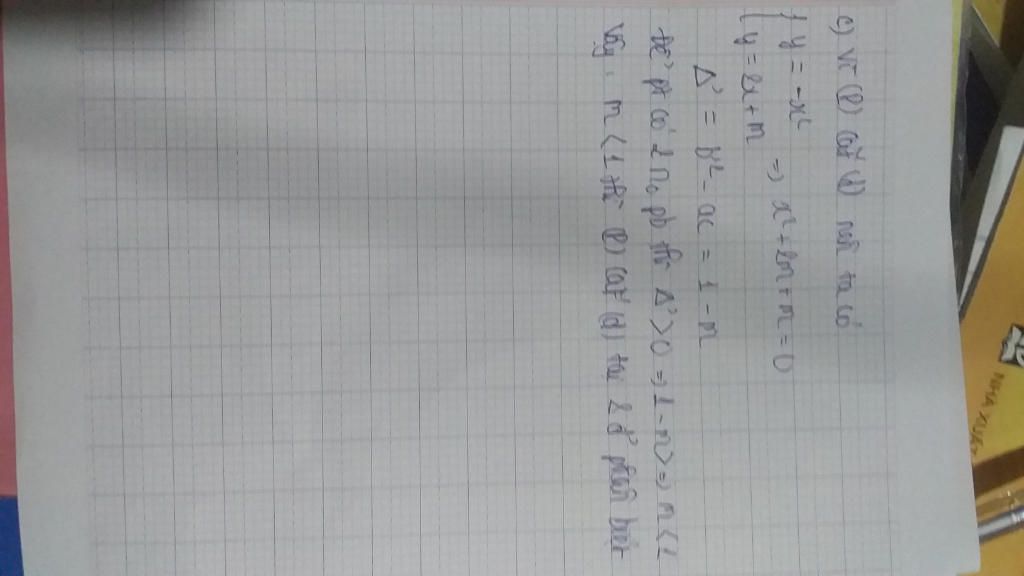 c) Vì (P) cắt (d) nên ta có
{ y = -x²
{ y = 2x + m => x² + 2m + m = 0
Δ' = b'² - ac = 1 - m
Để pt có 2 no pb thì Δ' > 0 => 1 - m > => m < 1
Vậy m < 1 thì (P) cắt (d) tại 2 đ' phân biệt
NHÀ XUẤT